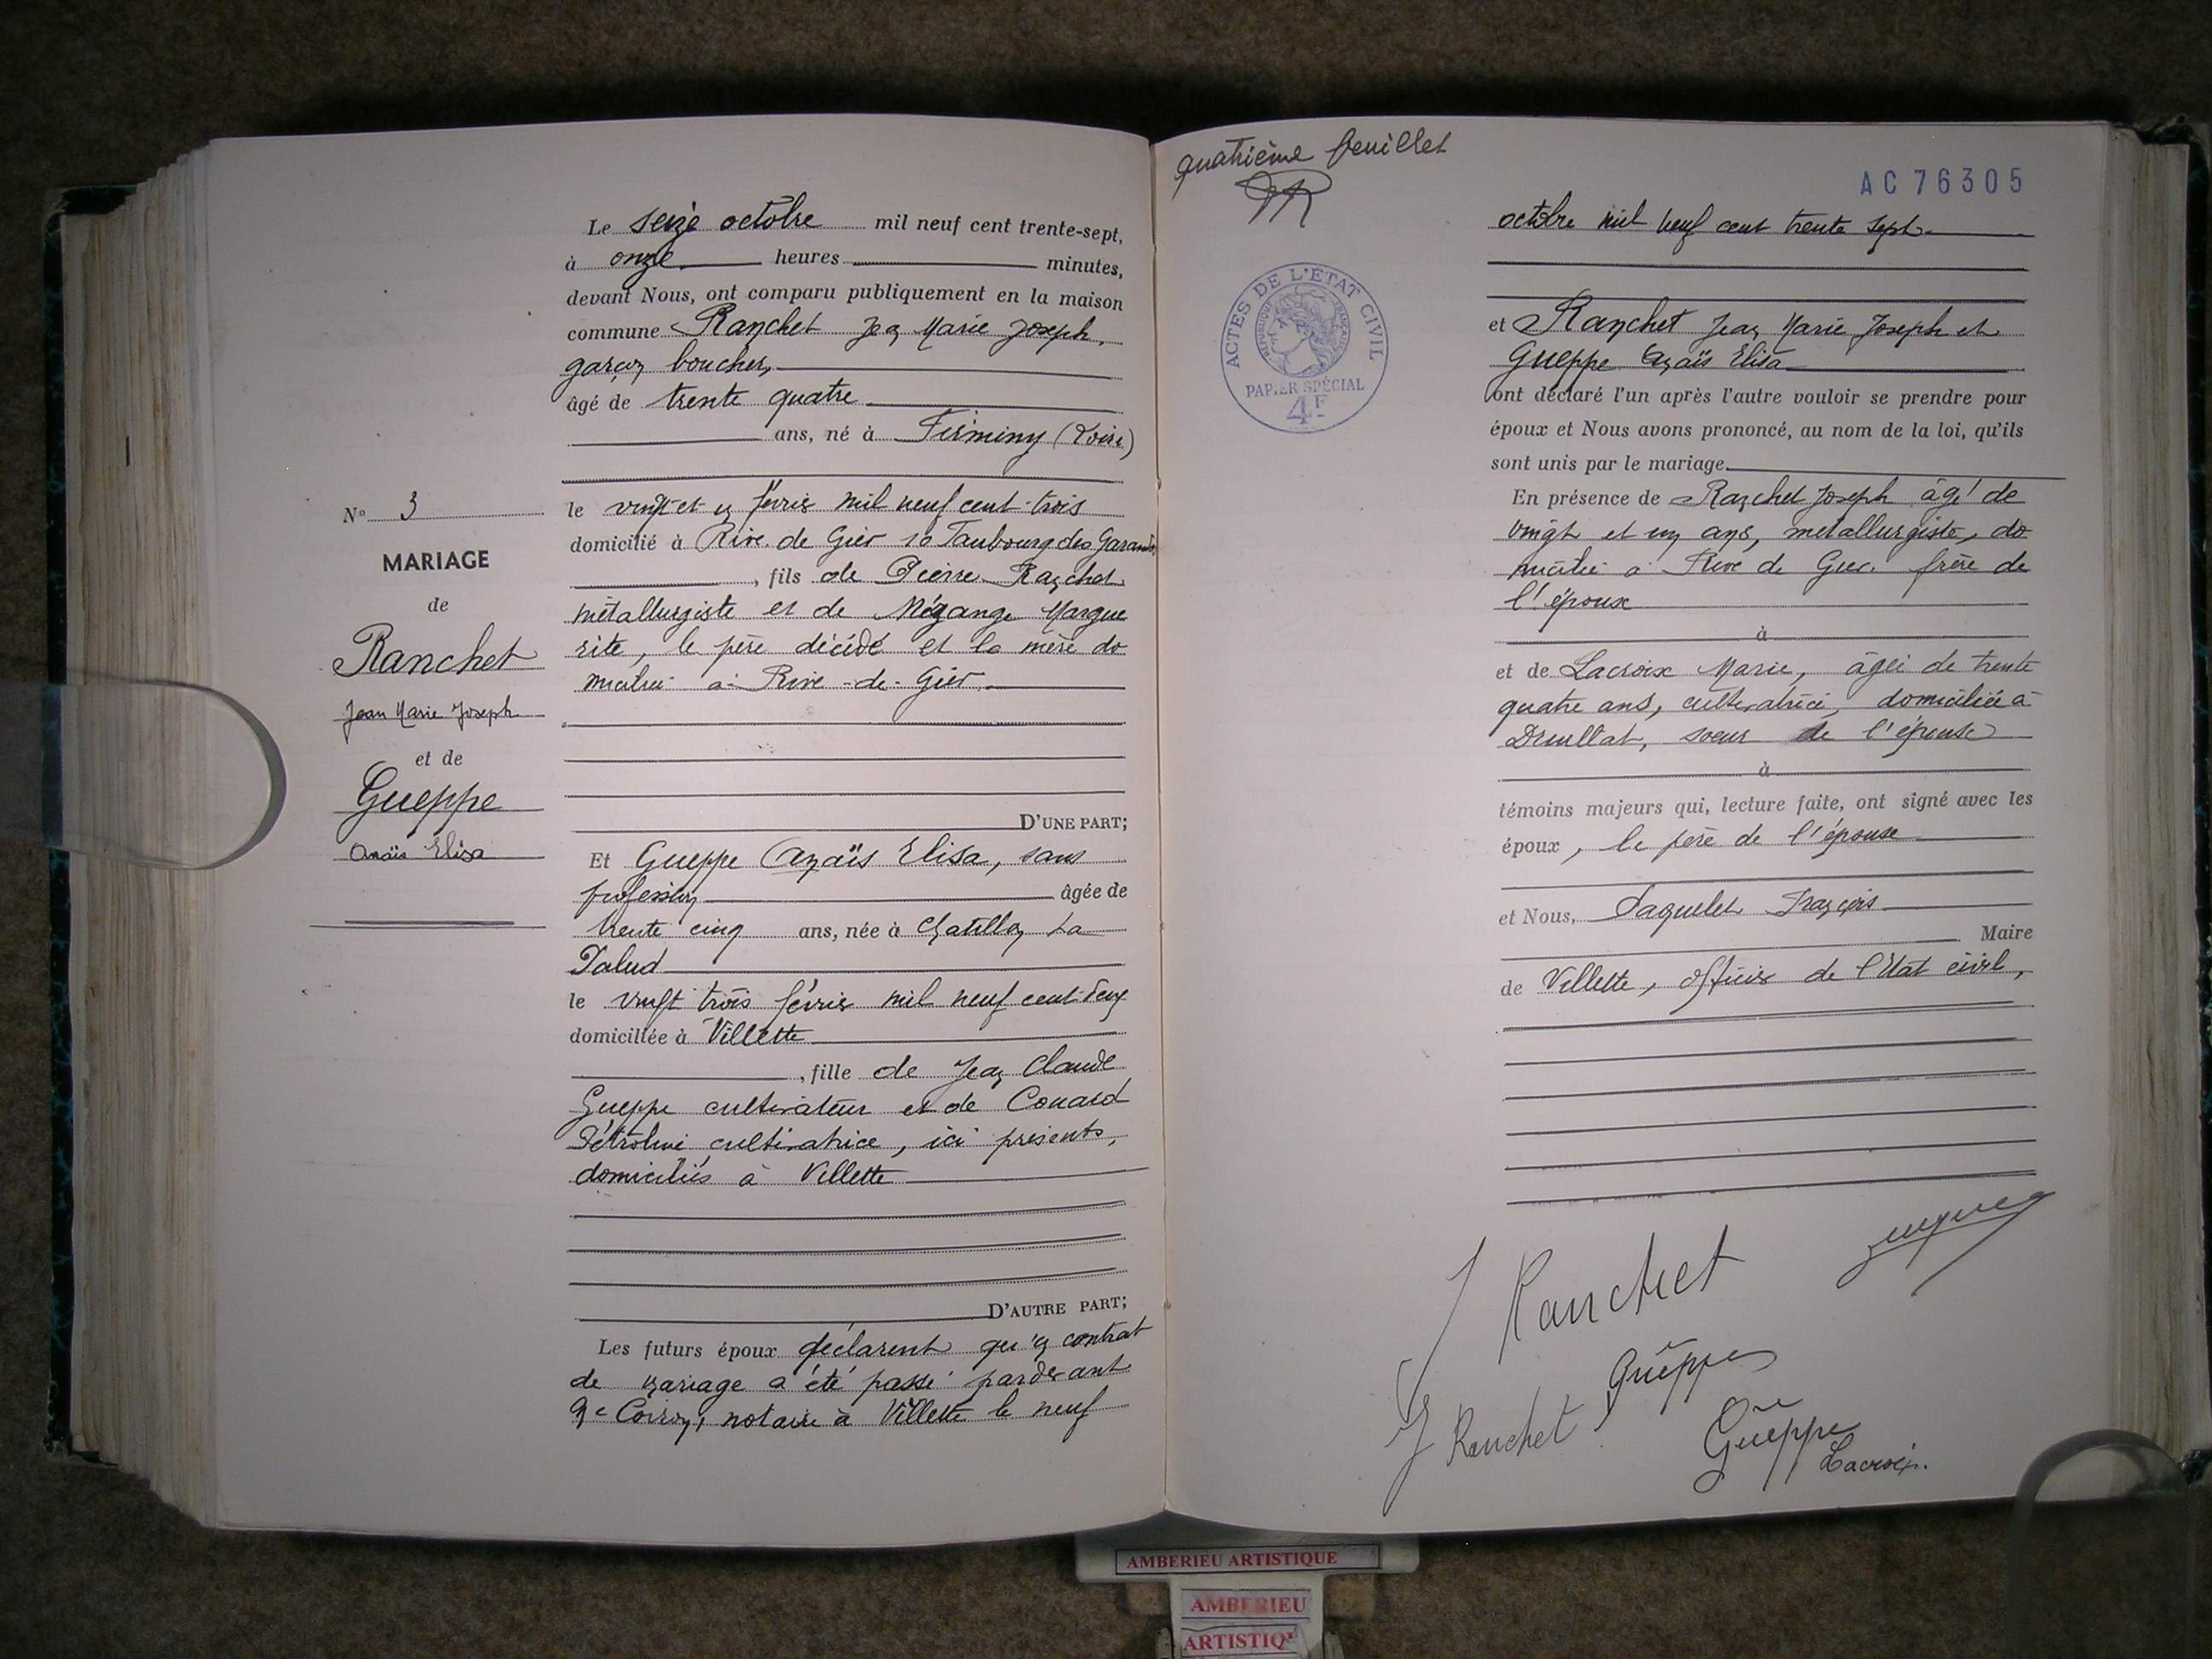 Le seize octobre mil neuf cent trente-sept,
à onze heures minutes,
devant Nous, ont comparu publiquement en la maison
commune Ranchet Jean Marie Joseph,
garçon boucher,
âgé de trente quatre
ans, né à Firminy (Loire)
le vingt et un février mil neuf cent trois
domicilié à Rive de Gier 10 Faubourg des
, fils de Pierre Ranchet
métallurgiste et de Margue
rite, le père décédé et la mère do
miciliée à Rive-de-Gier
D'UNE PART;
Et Gueppe Anaïs Elisa, sans
profession âgée de
trente cinq ans, née à Chatillon La
Palud
le vingt trois février mil neuf cent deux
domiciliée à Villette
, fille de Jean Claude
Gueppe cultivateur et de Couard
Pétroline, cultivatrice, ici présents,
domiciliés à Villette
D'AUTRE PART;
Les futurs époux déclarent qu'un contrat
de mariage a été passé pardevant
notaire à Villette le neuf
N° 3
MARIAGE
de
Ranchet
Jean Marie Joseph
et de
Gueppe
Anaïs Elisa
quatrième feuillet
AC 76305
ACTES DE L'ÉTAT CIVIL
RÉPUBLIQUE FRANÇAISE
PAPIER SPÉCIAL
4F
octobre mil neuf cent trente sept
et Ranchet Jean Marie Joseph et
Gueppe Anaïs Elisa
ont déclaré l'un après l'autre vouloir se prendre pour
époux et Nous avons prononcé, au nom de la loi, qu'ils
sont unis par le mariage.
En présence de Ranchet Joseph âgé de
vingt et un ans, métallurgiste, do
micilié à Rive de Gier frère de
l'époux
à
et de Lacroix Marie, âgée de trente
quatre ans, cultivatrice, domiciliée à
Druillat, soeur de l'épouse
à
témoins majeurs qui, lecture faite, ont signé avec les
époux, le père de l'épouse
et Nous, François
Maire
de Villette, officier de l'état civil,
J Ranchet
Gueppe
J Ranchet
Gueppe
Lacroix
AMBERIEU ARTISTIQUE
AMBERIEU
ARTISTIQ